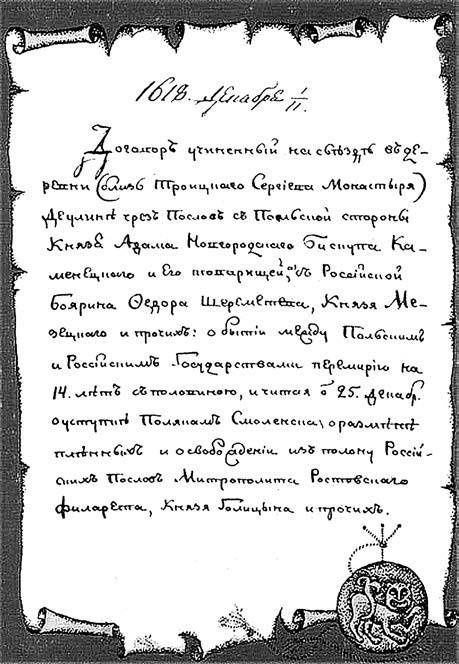 1618. Декабря 1/11.
Договоръ учиненный на съѣздѣ въ де-
ревни (близь Троицкаго Сергіева Монастыря)
Деулинѣ чрезъ Пословъ съ Польской стороны
Князя Адама Новгородскаго Бискупа Ка-
менецкаго и Его товарищей, а съ Россійской
Боярина Ѳедора Шереметева, Князя Ме-
зецкаго и прочихъ: о бытіи между Польскимъ
и Россійскимъ Государствами перемирію на
14. лѣтъ съ половиною, считая с 25. декабр.
о уступкѣ Полякамъ Смоленска, о размѣнѣ
плѣнныхъ и освобожденіи изъ полону Россій-
скихъ Пословъ Митрополита Ростовскаго
Филарета, Князя Голицына и прочихъ.